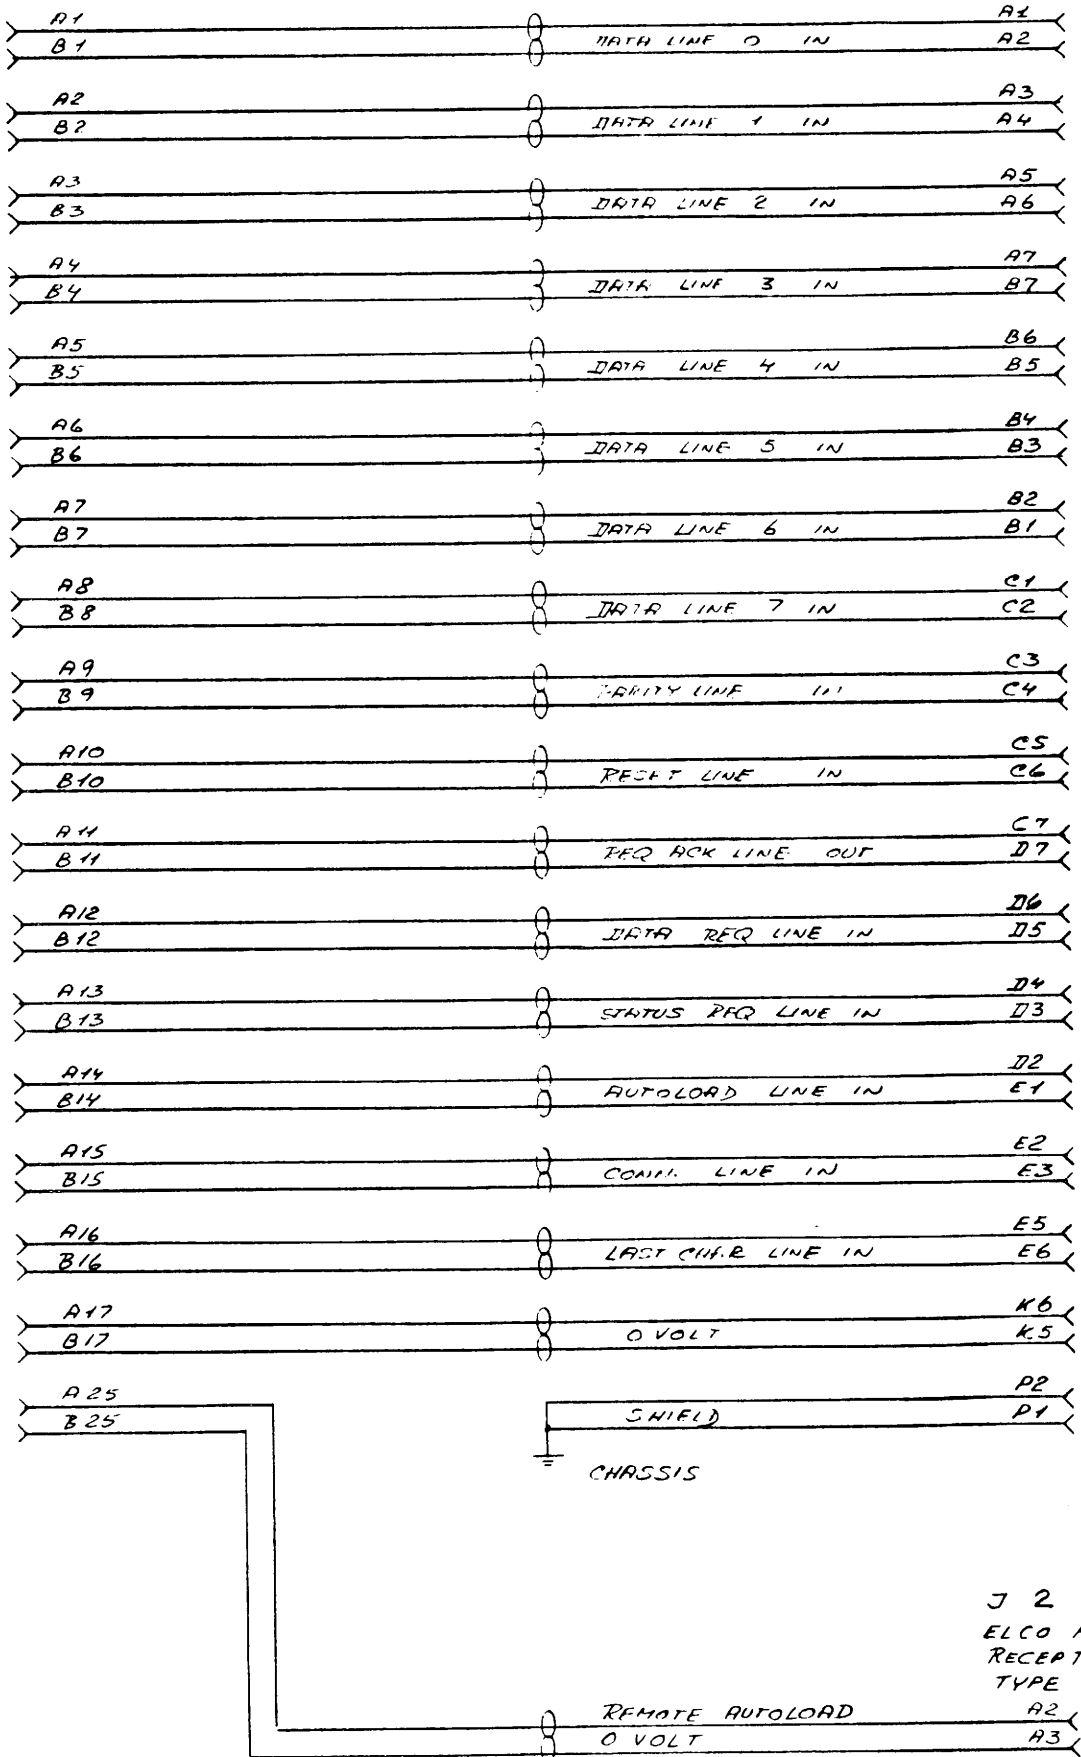 A1 A1
B1 DATA LINE 0 IN A2
A2 A3
B2 DATA LINE 1 IN A4
A3 A5
B3 DATA LINE 2 IN A6
A4 A7
B4 DATA LINE 3 IN B7
A5 B6
B5 DATA LINE 4 IN B5
A6 B4
B6 DATA LINE 5 IN B3
A7 B2
B7 DATA LINE 6 IN B1
A8 C1
B8 DATA LINE 7 IN C2
A9 C3
B9 PARITY LINE IN C4
A10 C5
B10 RESET LINE IN C6
A11 C7
B11 REQ ACK LINE OUT D7
A12 D6
B12 DATA REQ LINE IN D5
A13 D4
B13 STATUS REQ LINE IN D3
A14 D2
B14 AUTOLOAD LINE IN E1
A15 E2
B15 COMM. LINE IN E3
A16 E5
B16 LAST CHAR LINE IN E6
A17 K6
B17 0 VOLT K5
A25 P2
B25 SHIELD P1
CHASSIS
J 2
ELCO
RECEPT
TYPE
REMOTE AUTOLOAD A2
0 VOLT A3